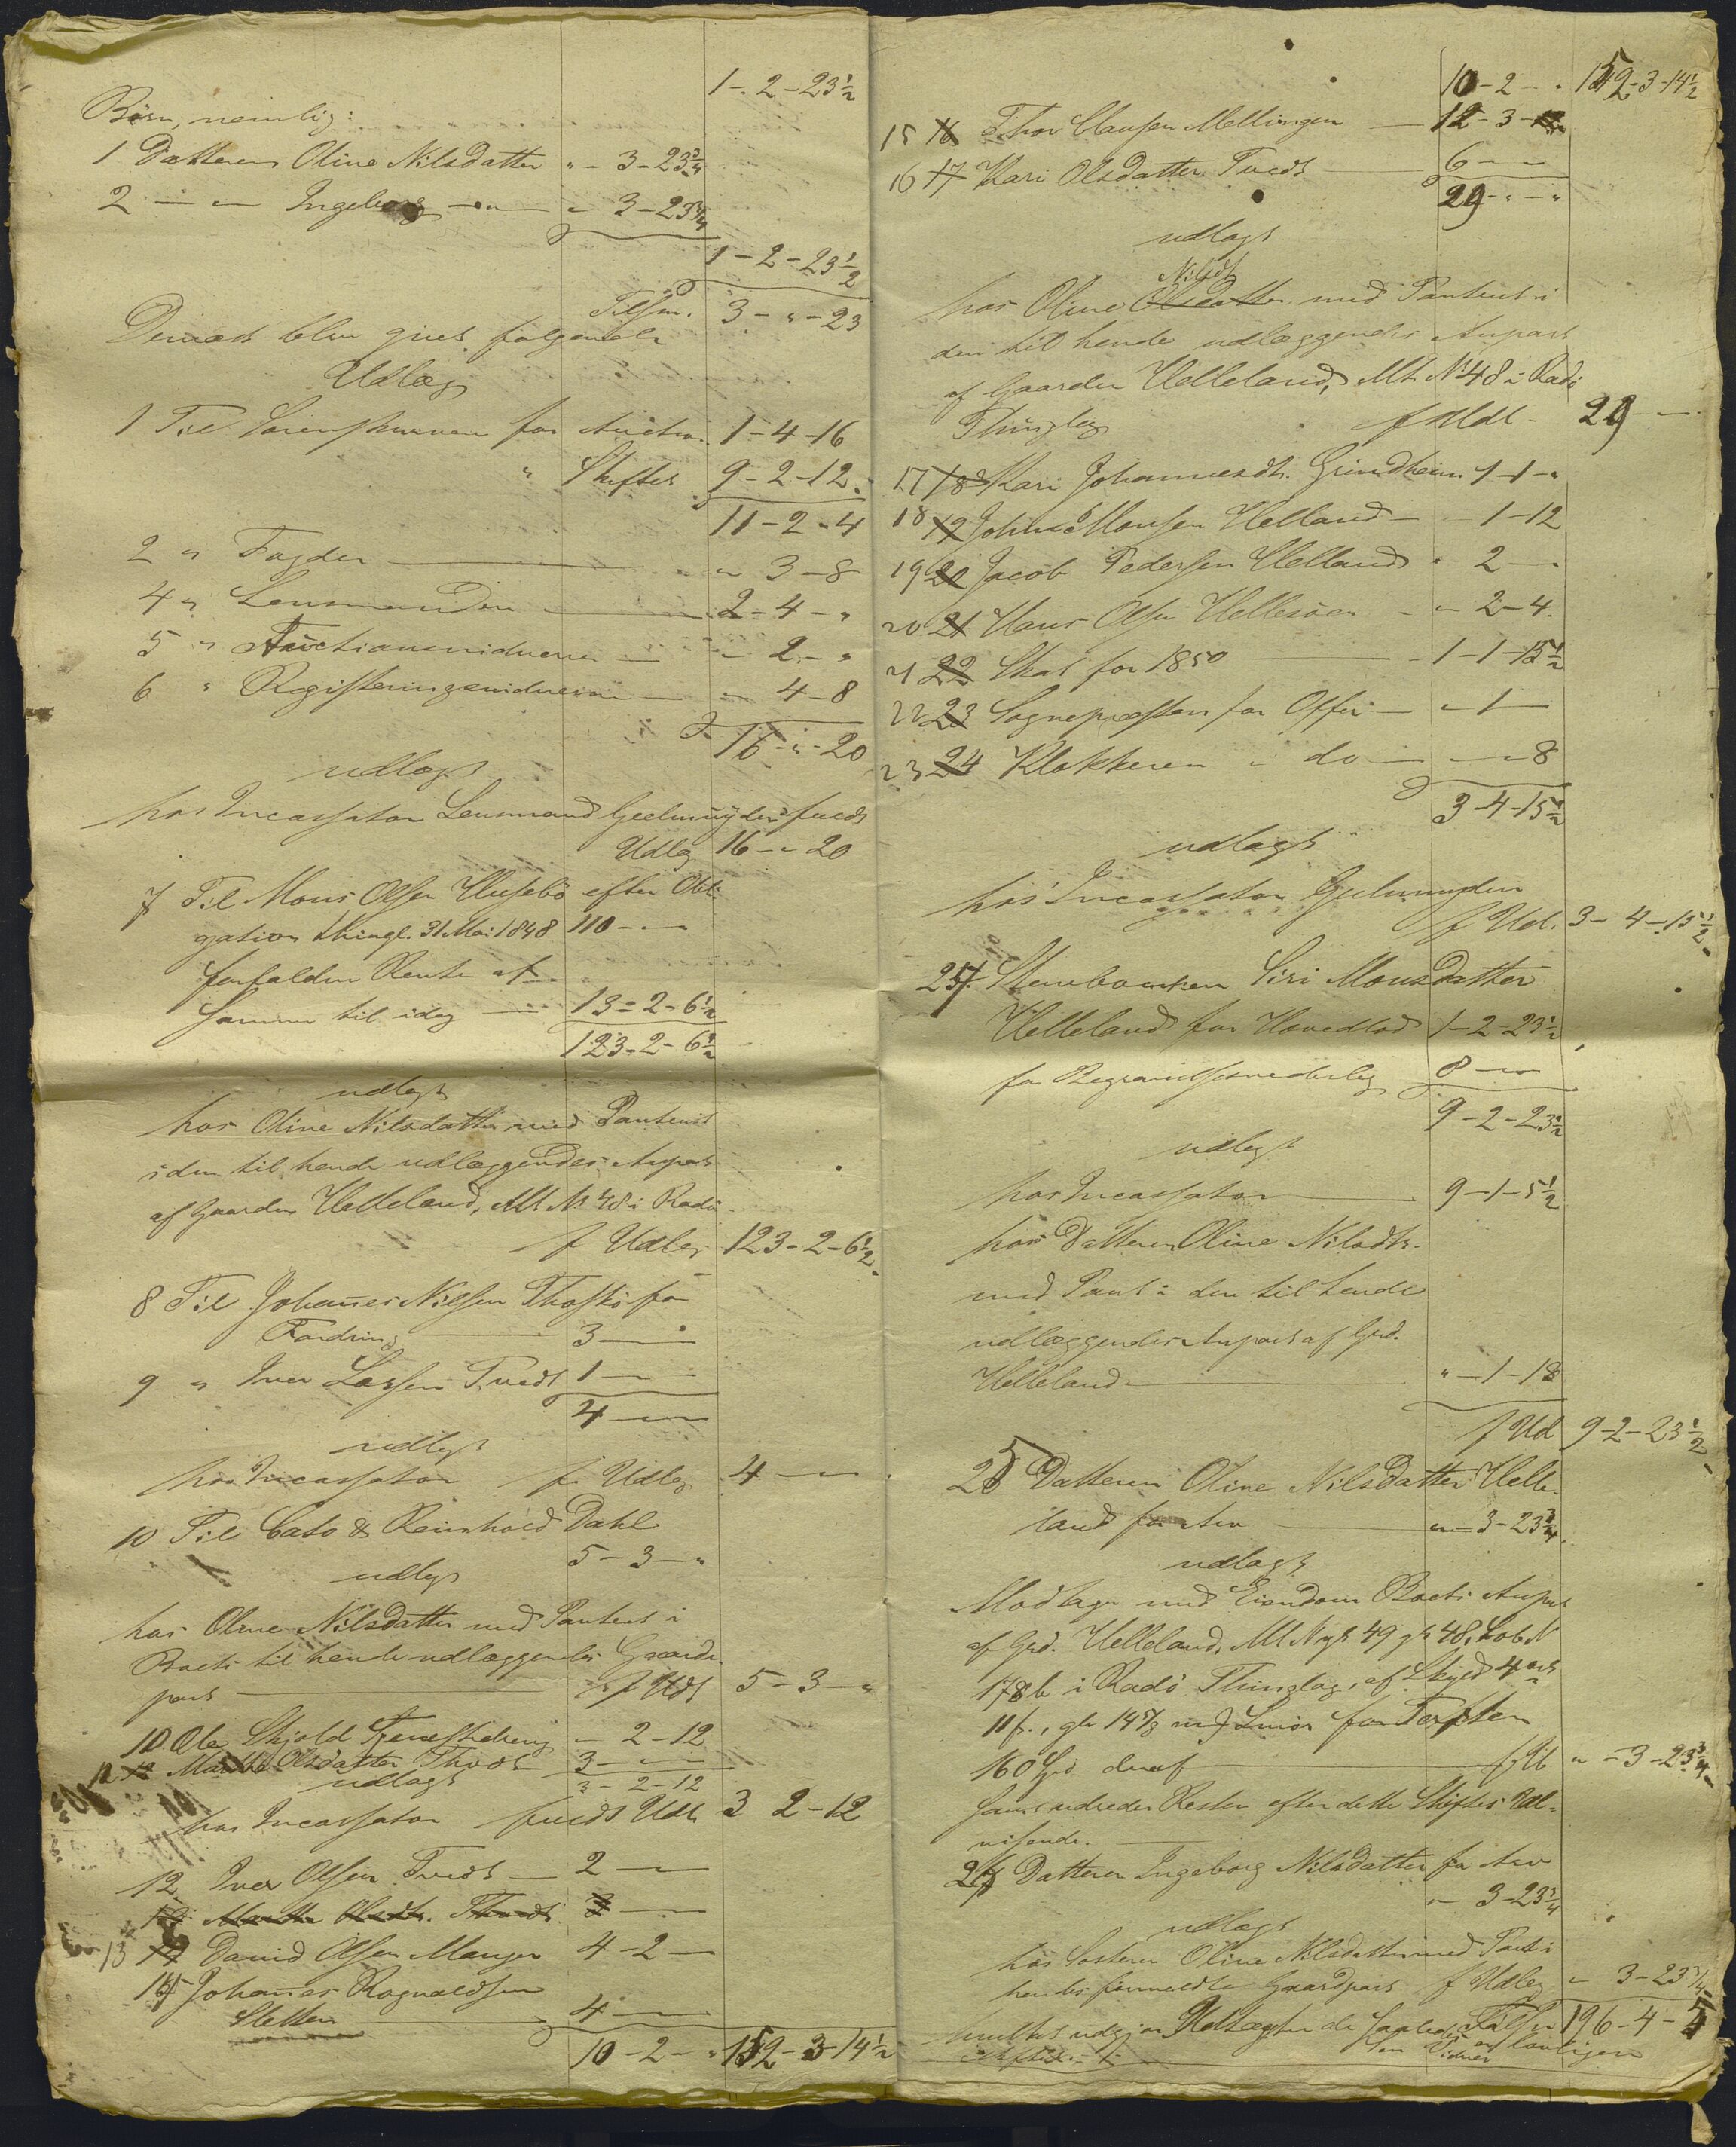 1 - 2 - 23½
Börn, nemlig:
1 Datteren Oline Nilsdatter " - 3 - 23¾
2 — " — Ingeborg — " — " 3 - 23¾
1 - 2 - 23½
Tilsm. 3 - " - 23
Dernæst blev gjort følgende
Udlæg
1 Til Sorenskriveren for Auction 1 - 4 - 16
" Skiftet 9 - 2 - 12
11 - 2 - 4
2 " Fogden — " 3 - 8
4 " Lensmanden — 2 - 4 - "
5 " Auctionsvidnerne — " 2 - "
6 " Registeringsvidnerne — " 4 - 8
16 - " - 20
udlagt
hos Incassator Lensmand Geelmuyden fuldt
Udlæg 16 - " 20
7 Til Mons Olsen Husebö efter Obli-
gation thingl. 31 Mai 1848 110 - " -
forfalden Rente af
samme til idag — 13 - 2 - 6½
123 - 2 - 6½
udlagt
hos Oline Nilsdatter med Panteret
i den til hende udlæggendes Anpart
af Gaarden Helleland, Mt. No 48 i Radö
f Udlæg 123 - 2 - 6½
8 Til Johanes Nilsen Thoskö for
Fordring — 3 —
9 " Iver Larsen Tvedt 1 - " -
4 —
udlagt
hos Incassator f. Udlæg 4 —
10 Til Cato & Reinhold Dahl
5 - 3 - "
udlagt
hos Oline Nilsdatter med Panteret i
Boets til hende udlæggendes Gaards-
part — f Udl 5 - 3 - "
10 Ole Skjold — 2 - 12
12 Martha Olsdatter Thvedt 3 —
3 - 2 - 12
udlagt
hos Incassator fuldt Udl. 3 2 - 12
12 Iver Olsen Tvedt — 2 —
Martha Olsdtr. Thvedt 3 —
13 14 David Olsen Manger 4 - 2 —
14 Johanes Rognaldsen
Sletten — 4 —
10 - 2 - " 152 - 3 - 14½
10 - 2 - " 152 - 3 - 14½
15 16 Thor Clausen Mellingen — 12 - 3 -
16 17 Kari Olsdatter Tvedt — 6 - —
29 - " - "
udlagt
Nilsdt
hos Oline Olsdatter med Panteret i
den til hende udlæggendes Anpart
af Gaarden Helleland, Mt. No 48 i Radö
Thinglag f Udl - 29 —
17 18 Kari Johannesdt. Grindheim 1 - 1 - "
18 19 Johans Monsen Helland — " 1 - 12
19 20 Jacob Pedersen Helland " 2 —
20 21 Hans Olsen Hellesöen — " 2 - 4
21 22 Skat for 1850 — 1 - 1 - 15½
22 23 Sognepresten for Offer — " 1 —
23 24 Klokkeren " do — " " 8
3 - 4 - 15½
udlagt
hos Incassator Gjelmuyden
f Udl. 3 - 4 - 15½
24 Stervboenken Siri Monsdatter
Helleland for Hovedlod 1 - 2 - 23½
for Begravelsesvederlag 8 —
9 - 2 - 23½
udlagt
hos Incassator — 9 - 1 - 5½
hos Datteren Oline Nilsdtr.
med Pant i den til hende
udlæggendes Anpart af Grd.
Helleland — " - 1 - 18
f Ud 9 - 2 - 23½
25 Datteren Oline Nilsdatter Helle-
land for Arv — " - 3 - 23¾
udlagt
Modtager med Eiendom Boets Anpart
af Grd. Helleland, Mt N nyt 49 gt 48, Löb N
178b i Radö Thinglag, af Skyld 4 ort
11 s., gl. 14⅝ m Smör for Taxten
160 Spd. deraf — f Ub " - 3 - 23¾
samt udreder Resten efter dette Skiftes Ud-
visende.
26 Datteren Ingeborg Nilsdatter for Arv
" 3 - 23¾
udlagt
hos Sösteren Oline Nilsdatter med Pant i
hendes formeldte Gaardpart f Udlæg " 3 - 23¾
hvilket udgjør Udlægterne 196 - 4 - 5